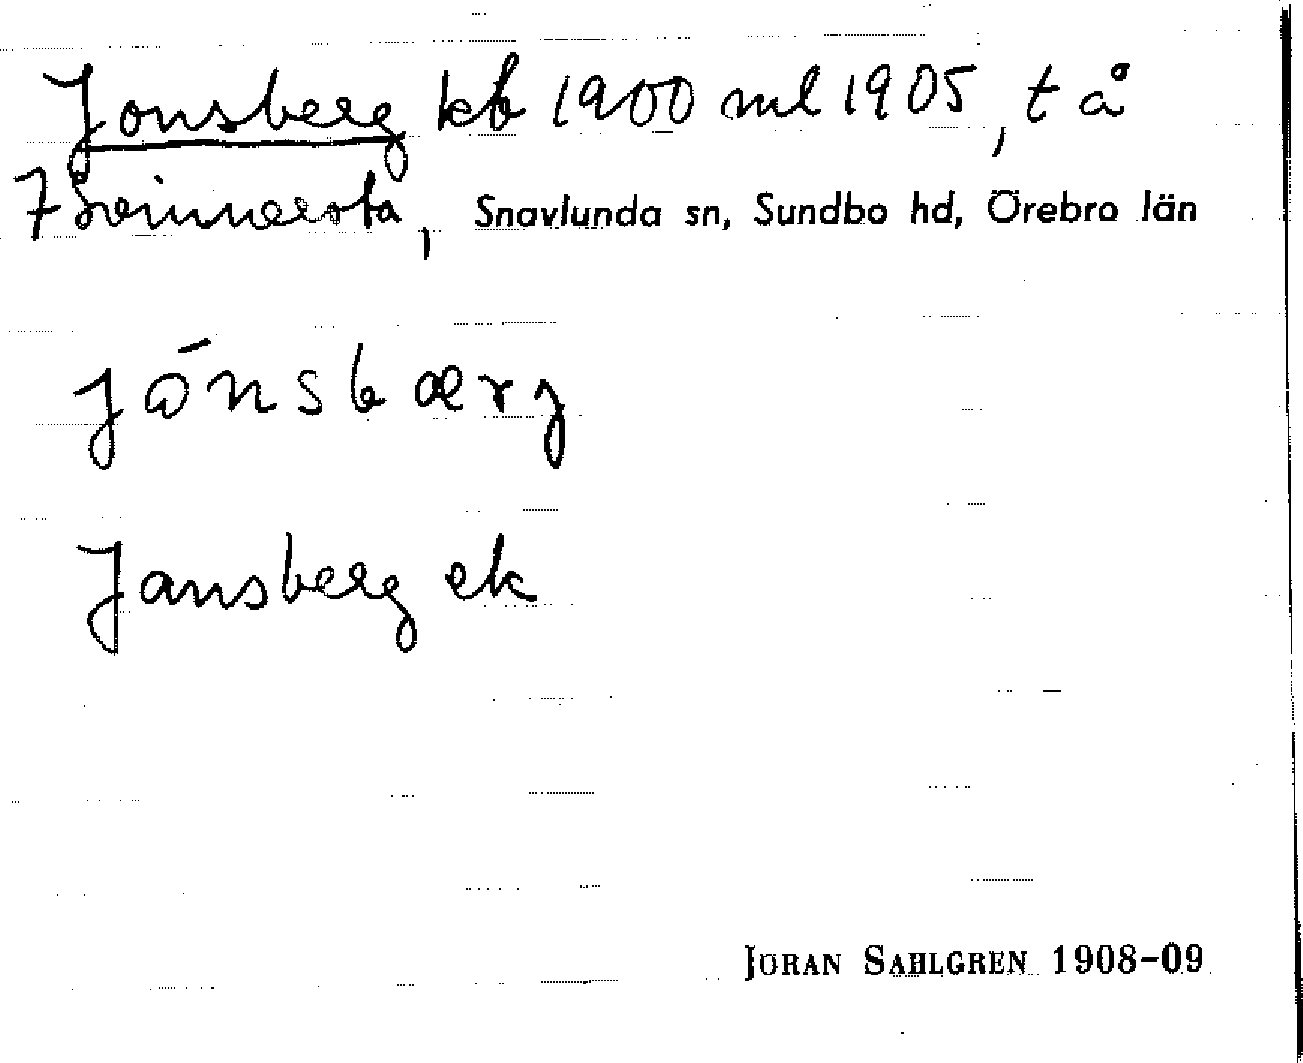 Jonsberg kb 1900 ml 1905, t å
7 Svinnersta, Snavlunda sn, Sundbo hd, Örebro län
jȯ́nsbærj
Jansberg ek
JÖRAN SAHLGREN 1908-09